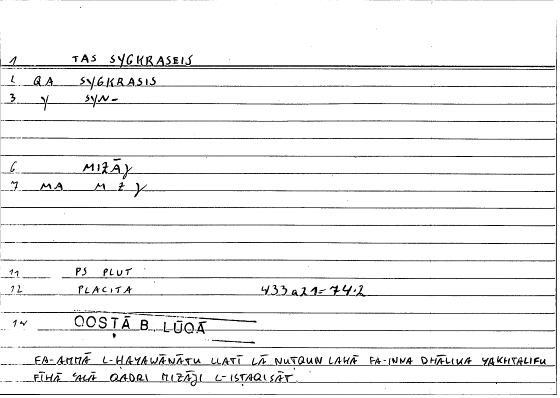 1 TAS SYGKRASEIS
2 QA SYGKRASIS
3 Y SYN-
6 MIZĀJ
7 MA M Z J
11 PS PLUT
12 PLACITA 433a21=74.2
14 QOSṬĀ B. LŪQĀ
FA-AMMĀ L-ḤAYAWĀNĀTU LLATĪ LĀ NUṬQUN LAHĀ FA-INNA DHĀLIKA YAKHTALIFU
FĪHĀ ʿALĀ QADRI MIZĀJI L-ISTAQIṢĀT